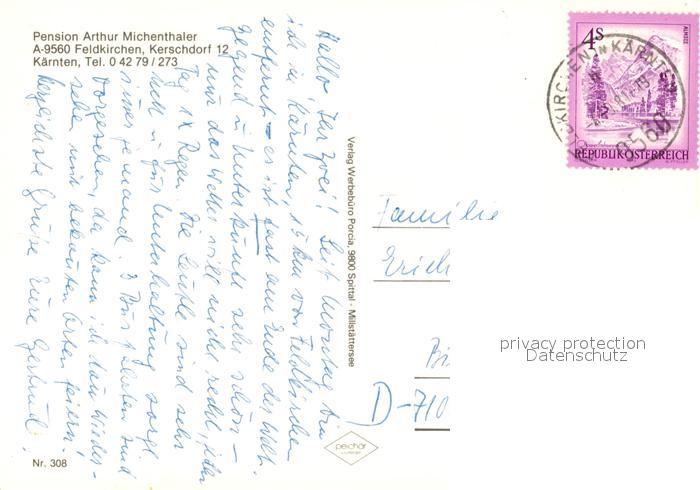 Pension Arthur Michenthaler
A-9560 Feldkirchen, Kerschdorf 12
Kärnten, Tel. 0 42 79 / 273
Hallo Ihr zwei! Seit Montag bin
ich in Kärnten, 15 km von Feldkirchen
entfernt – es ist fast am Ende der Welt.
Gegend u. Unterkunft sehr schön –
nur das Wetter will nicht recht, jeden
Tag 1 x Regen. Die Leutle sind sehr
nett u. für Unterhaltung sorgt
immer jemand. 3 Busfahrten sind
vorgesehen, da kann ich dann Wieder-
sehen mit bekannten Orten feiern!
Herzlichste Grüße Eure Gertrud.
Nr. 308
Verlag Werbebüro Porcia, 9800 Spittal - Millstättersee
peichär
4 S
ALMSEE
REPUBLIK ÖSTERREICH
KIRCHEN IN KÄRNTEN
9560
Familie
Erich
Bi
D-710
privacy protection
Datenschutz